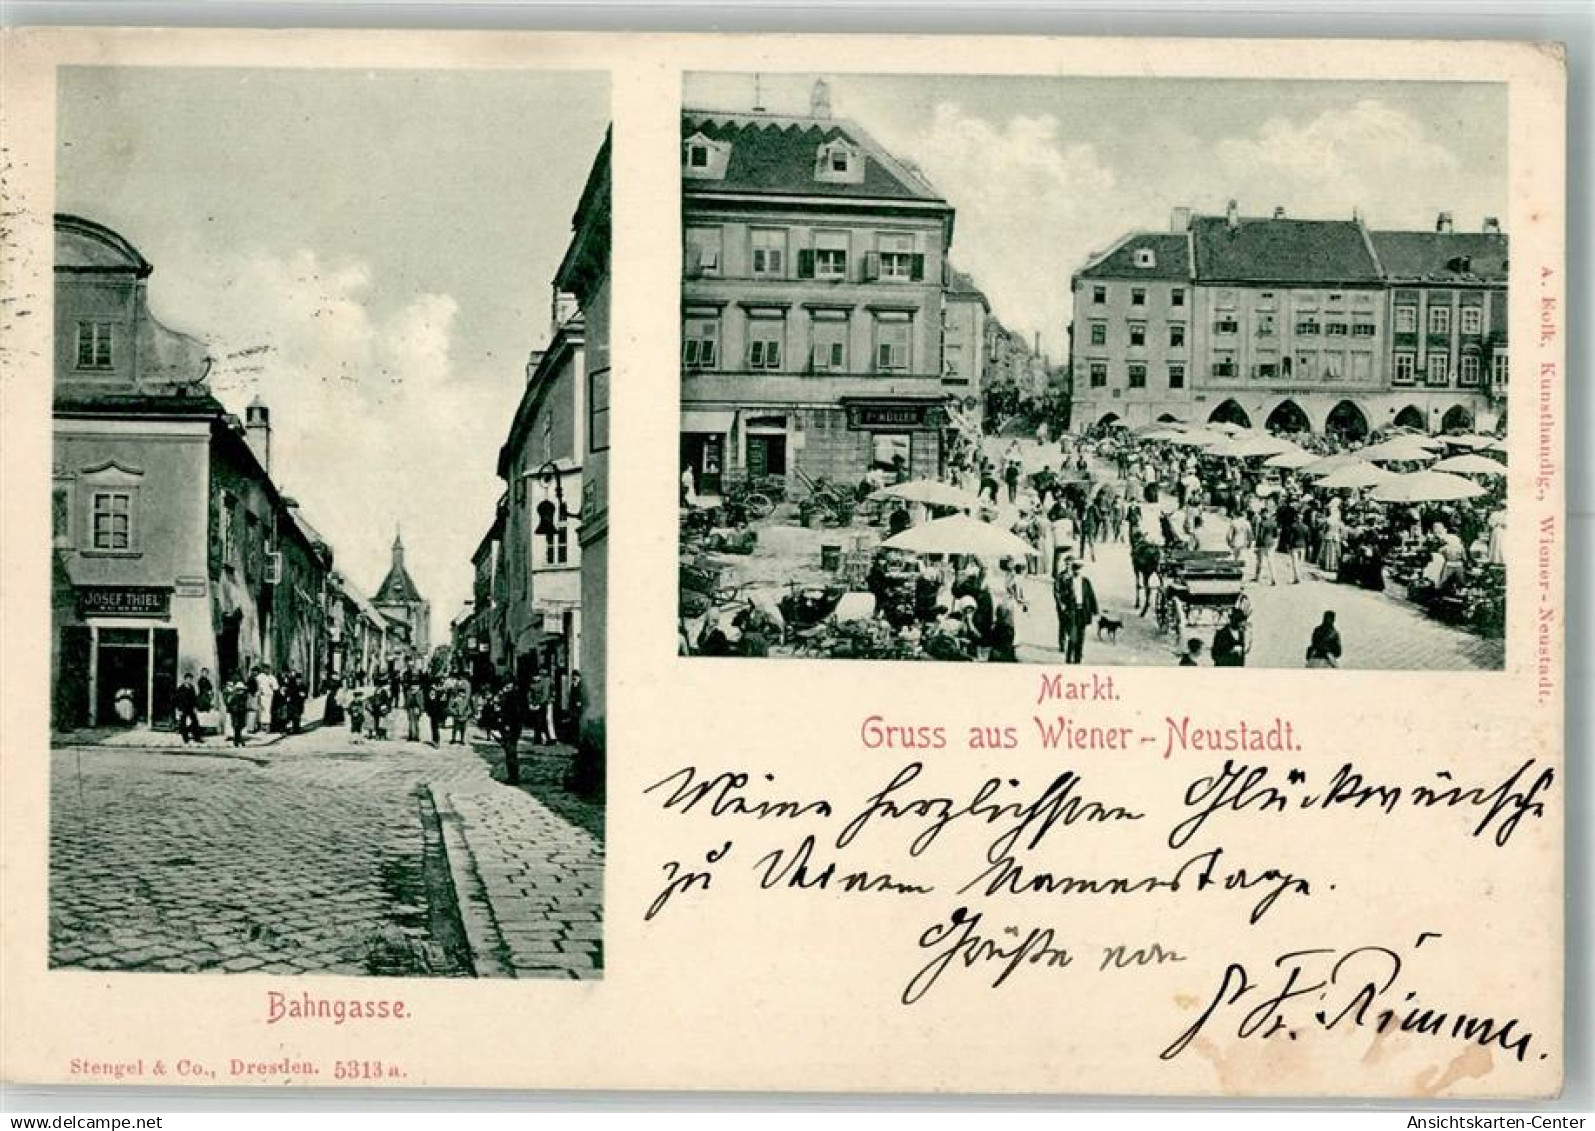 JOSEF THIEL
Bahngasse.
Stengel & Co., Dresden. 5313 a.
MÜLLER
Markt.
Gruss aus Wiener-Neustadt.
Meine herzlichsten Glückwünsche
zu Deinem Namenstage.
Grüße von
Fr.
A. Folk, Kunsthandlg., Wiener-Neustadt.
AnsichtsKarten-Center